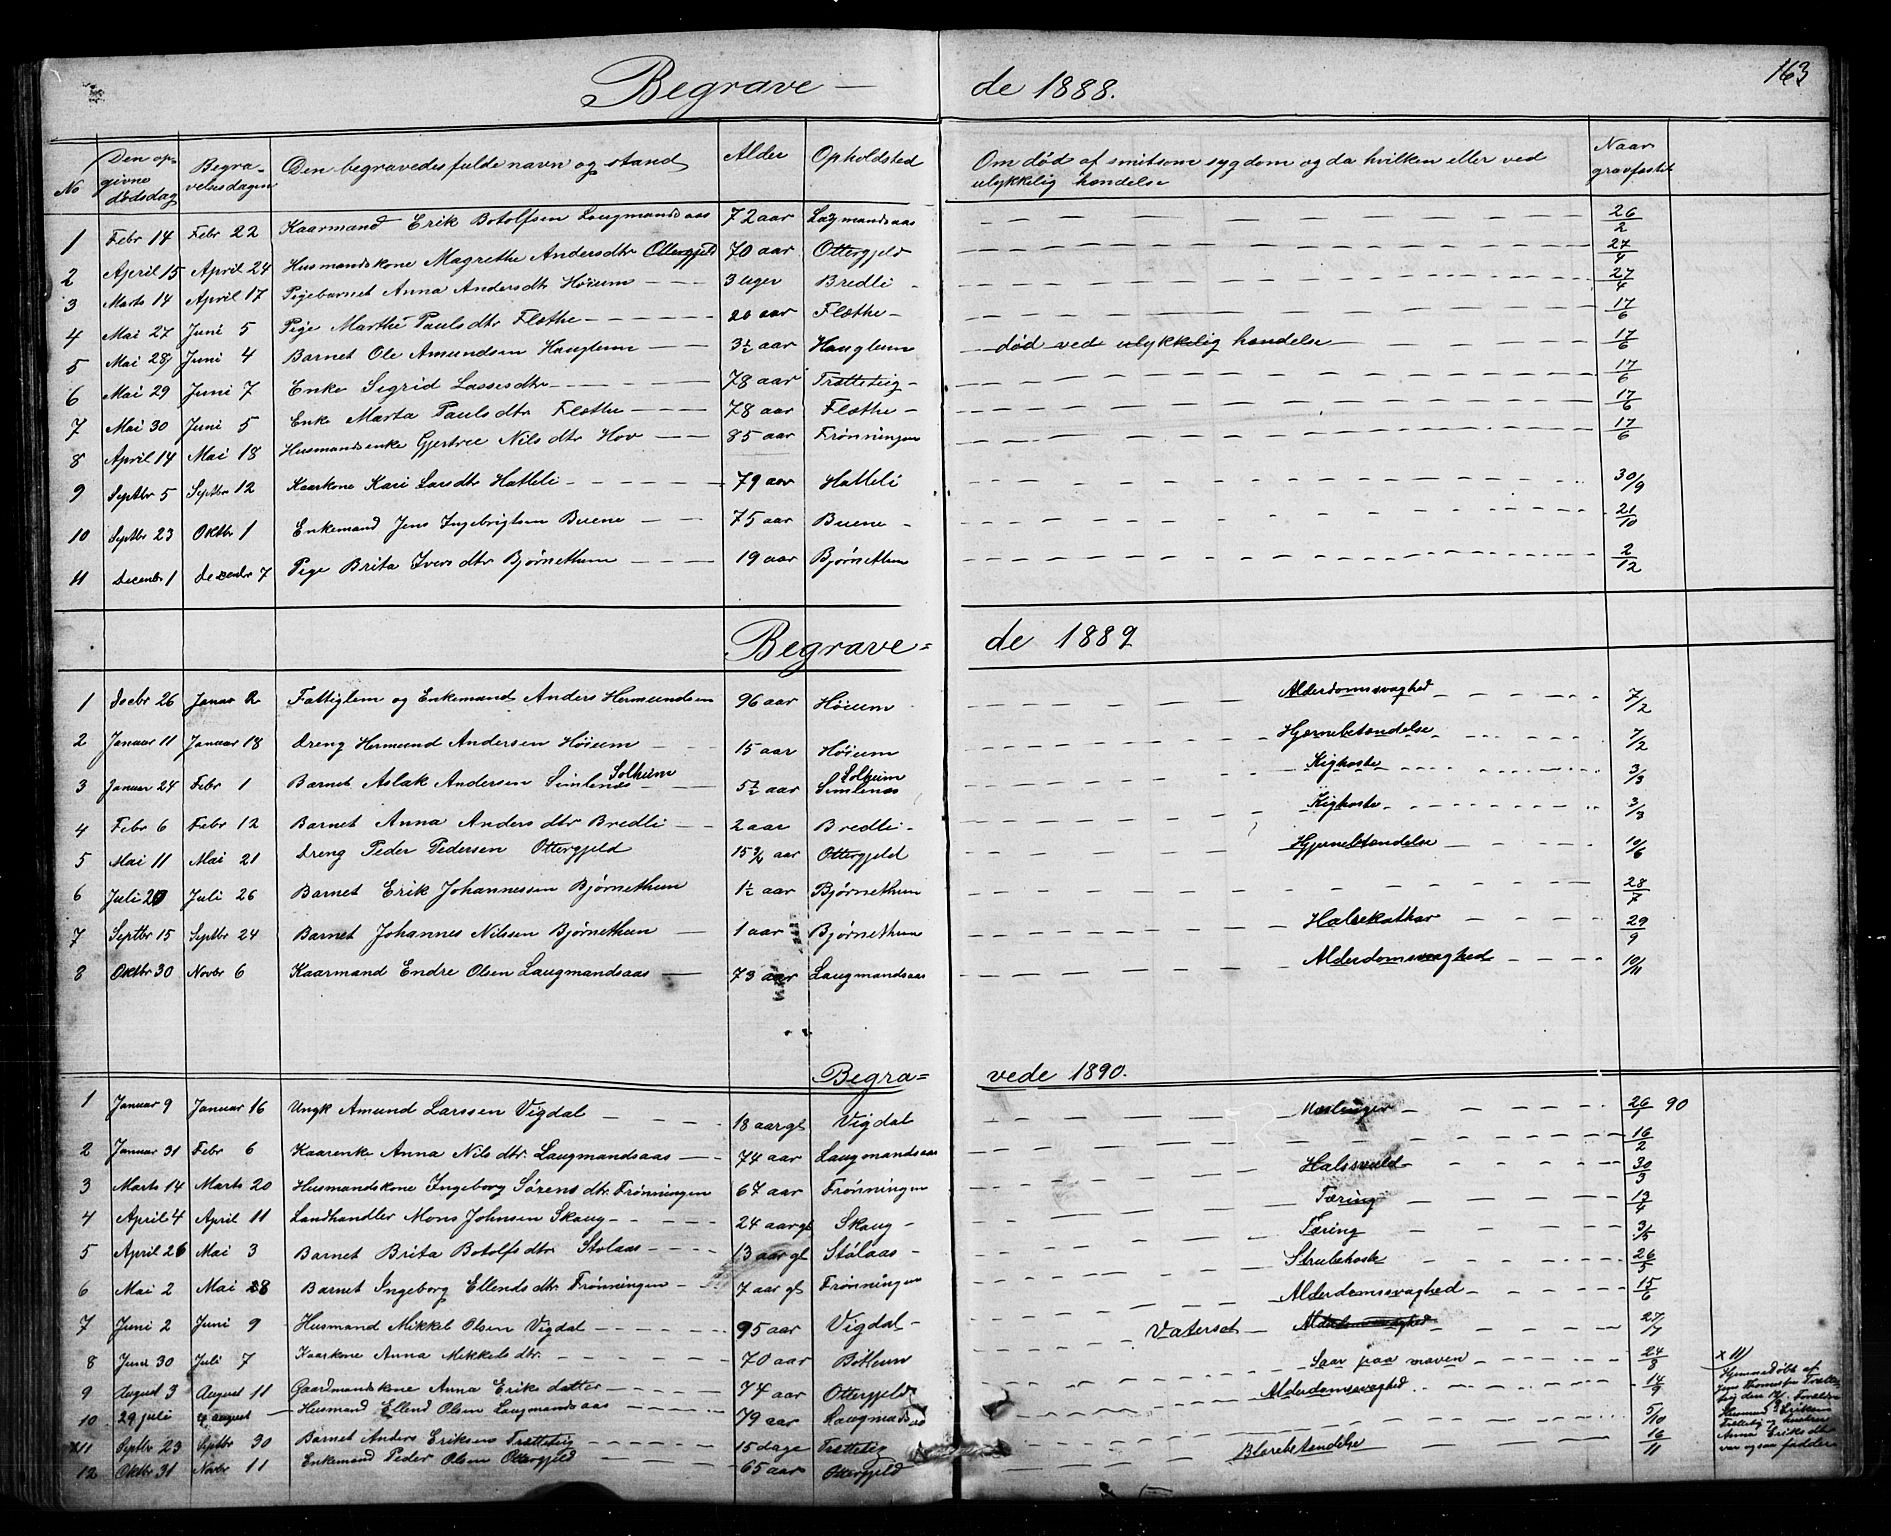 163
Begrave — de 1888.
No Den opgivne dødsdag Begravelsesdagen Den begravedes fulde navn og stand Alder Opholdsted Om død af smitsom sygdom og da hvilken eller ved ulykkelig hændelse Naar gravfæstet
1 Febr 14 Febr 22 Kaarmand Erik Botolfsen Laugmandsaas 72 aar Laugmandsaas 26/2
2 April 15 April 24 Husmandskone Magrethe Andersdtr Ottergjeld 70 aar Ottergjeld 27/4
3 Marts 14 April 17 Pigebarnet Anna Andersdtr Høium 3 uger Bredli 27/4
4 Mai 27 Juni 5 Pige Marthe Paulsdtr Flæthe 20 aar Flæthe 17/6
5 Mai 28 Juni 4 Barnet Ole Amundsen Hauglum 3½ aar Hauglum død ved ulykkelig hændelse 17/6
6 Mai 29 Juni 7 Enke Sigrid Lassesdtr 78 aar Trætteteig 17/6
7 Mai 30 Juni 5 Enke Marta Paulsdtr Flæthe 78 aar Flæthe 17/6
8 April 14 Mai 18 Husmandsenke Gjertrue Nilsdtr Hov 85 aar Frønningen 17/6
9 Septbr 5 Septbr 12 Kaarkone Kari Larsdtr Hatleli 79 aar Hatleli 30/9
10 Septbr 23 Oktbr 1 Enkemand Jens Ingebrigtsen Buene 75 aar Buene 21/10
11 Decembr 1 Decembr 7 Pige Brita Iversdtr Bjørnethun 19 aar Bjørnethun 2/12
Begrave= de 1889
1 Decbr 26 Januar 2 Fattiglem og Enkemand Anders Hermundsen 96 aar Høium Alderdomssvaghed 7/2
2 Januar 11 Januar 18 Dreng Hermund Andersen Høium 15 aar Høium Hjernebetændelse 7/2
3 Januar 24 Febr 1 Barnet Aslak Andersen Simlenæs Solheim 5½ aar Solheim Simlenæs Kighoste 3/3
4 Febr 6 Febr 12 Barnet Anna Andersdtr Bredli 2 aar Bredli Kighoste 3/3
5 Mai 11 Mai 21 Dreng Peder Pedersen Ottergjeld 15 aar Ottergjeld Hjernebetændelse 10/6
6 Juli 20 Juli 26 Barnet Erik Johannessen Bjørnethun 1½ aar Bjørnethun 28/7
7 Septbr 15 Septbr 24 Barnet Johannes Nilssen Bjørnethun 1 aar Bjørnethun Halsekathar 29/9
8 Oktbr 30 Novbr 6 Kaarmand Endre Olsen Laugmandsaas 73 aar Laugmandsaas Alderdomssvaghed 10/11
Begra= vede 1890.
1 Januar 9 Januar 16 Ungk Amund Larssen Vigdal 18 aar gl Vigdal Mæslinger 26/1 90
2 Januar 31 Febr 6 Kaarenke Anna Nilsdtr Laugmandsaas 74 aar Laugmandsaas 16/2
3 Marts 14 Marts 20 Husmandskone Ingeborg Sørensdtr Frønningen 67 aar Frønningen Halssvuld 30/3
4 April 4 April 11 Landhandler Mons Johnsen Skaug 24 aar gl Skaug Tæring 13/4
5 April 26 Mai 3 Barnet Brita Botolfsdtr Stølaas 13 aar gl Stølaas Tæring 3/5
6 Mai 2 Mai 8 Barnet Ingeborg Ellendsdtr Frønningen 7 aar gl Frønningen Strubehoste 26/5
7 Juni 2 Juni 9 Husmand Mikkel Olsen Vigdal 95 aar Vigdal Alderdomssvaghed 15/6
8 Juni 30 Juli 7 Kaarkone Anna Mikkelsdtr. 70 aar Bothun Vatersot Alderdomssvaghed 27/7
9 August 3 August 11 Gaardmandskone Anna Eriksdatter 74 aar Ottergjeld Saar paa maven 24/8
10 29 juli 4 august Husmand Ellend Olsen Laugmandsaas 79 aar Laugmandsaas Alderdomssvaghed 14/9
x11 Septbr 23 Septbr 30 Barnet Anders Eriksen Trætteteig 15 dage Trætteteig 5/10
12 Oktbr 31 Novbr 11 Enkemand Peder Olsen Ottergjeld 65 aar Ottergjeld Blærebetændelse 16/11
x 11/
Hjemmedøbt af
Anna Eriksdtr
var ogsaa fadder